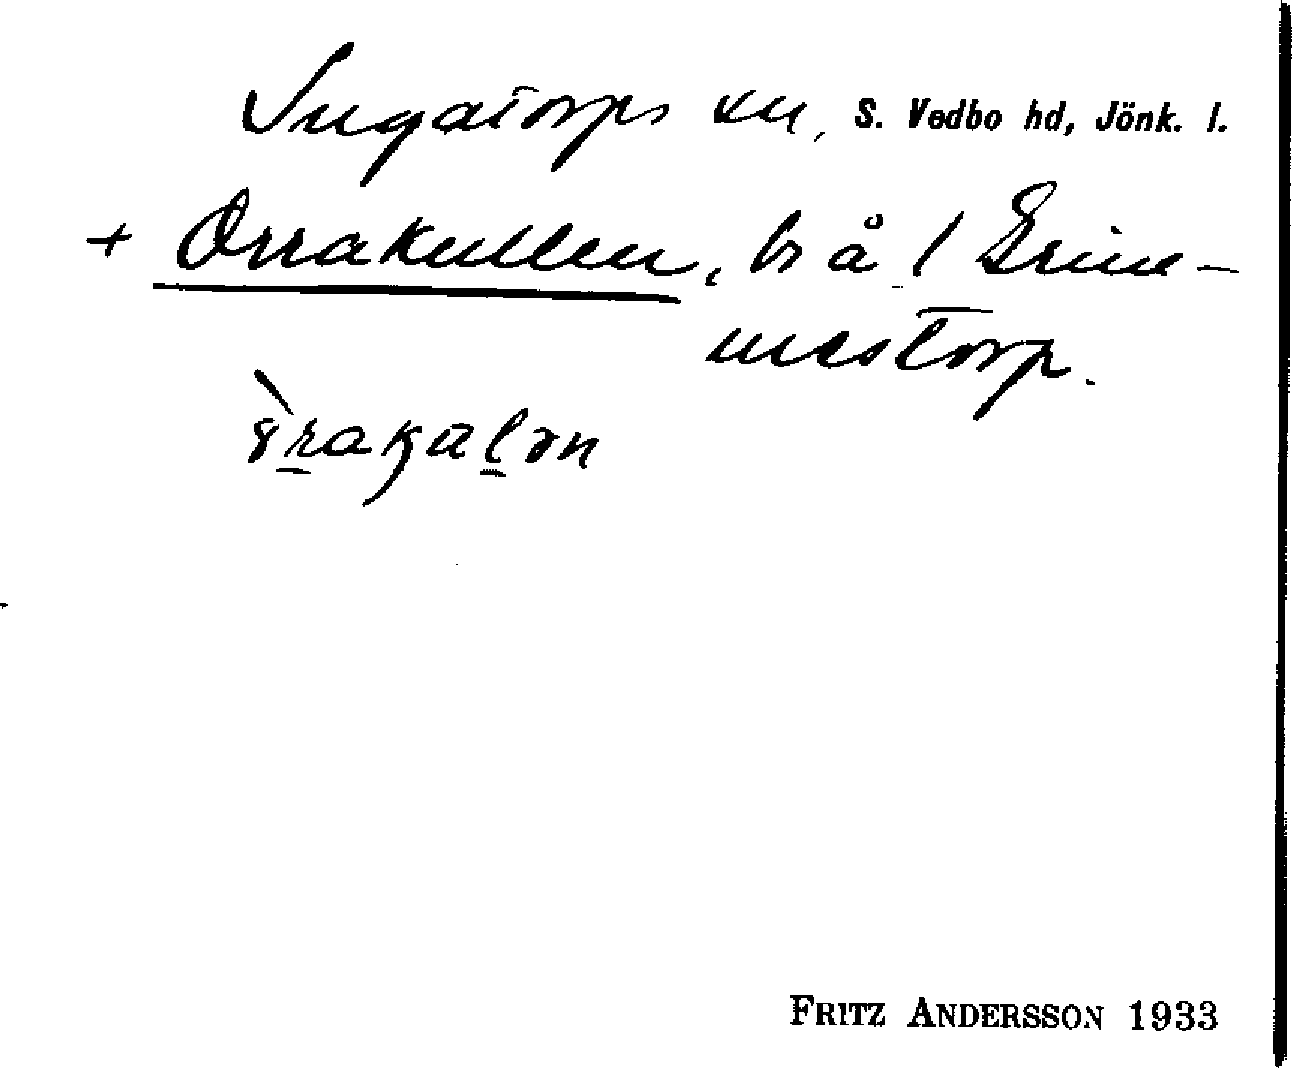 Ingatorps sn, S. Vedbo hd, Jönk. l.
+ Orrakullen, bs å 1 Grim-
mestorp.
FRITZ ANDERSSON 1933